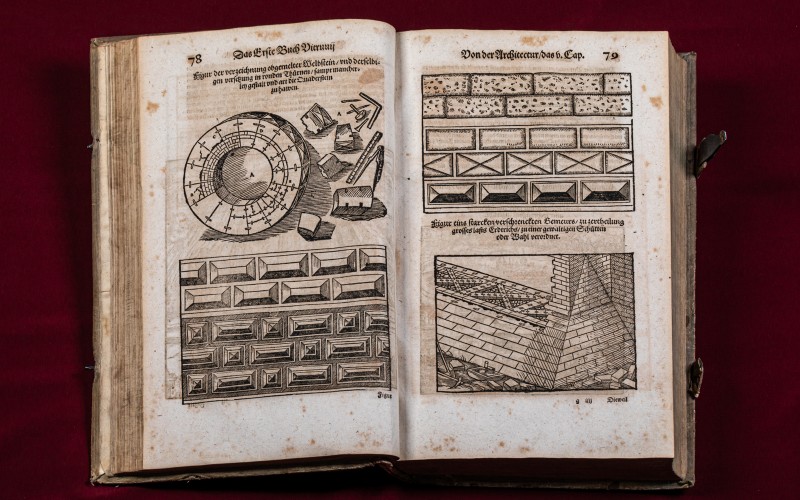 78
Das Erste Buch Vitruuij
Figur der verzeichnung obgemelter Veldstein / vnd derselbi-
gen versetzung in runden Thürnen / sampt mancher-
ley gestalt vnd art die Quaderstein
zu hawen.
A
A
Figur
Von der Architectur / das v. Cap.
79
Figur eins starcken verschrenckten Gemeurs / zu zertheilung
grosses lasts Erdtrichs / zu einer gewaltigen Schütten
oder Wahl verordnet.
g iiij
Diewal